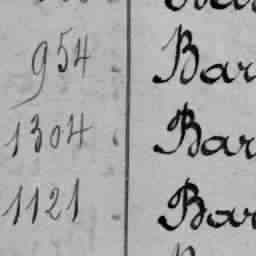 954. Bar
1304. Bar
1121. Bar